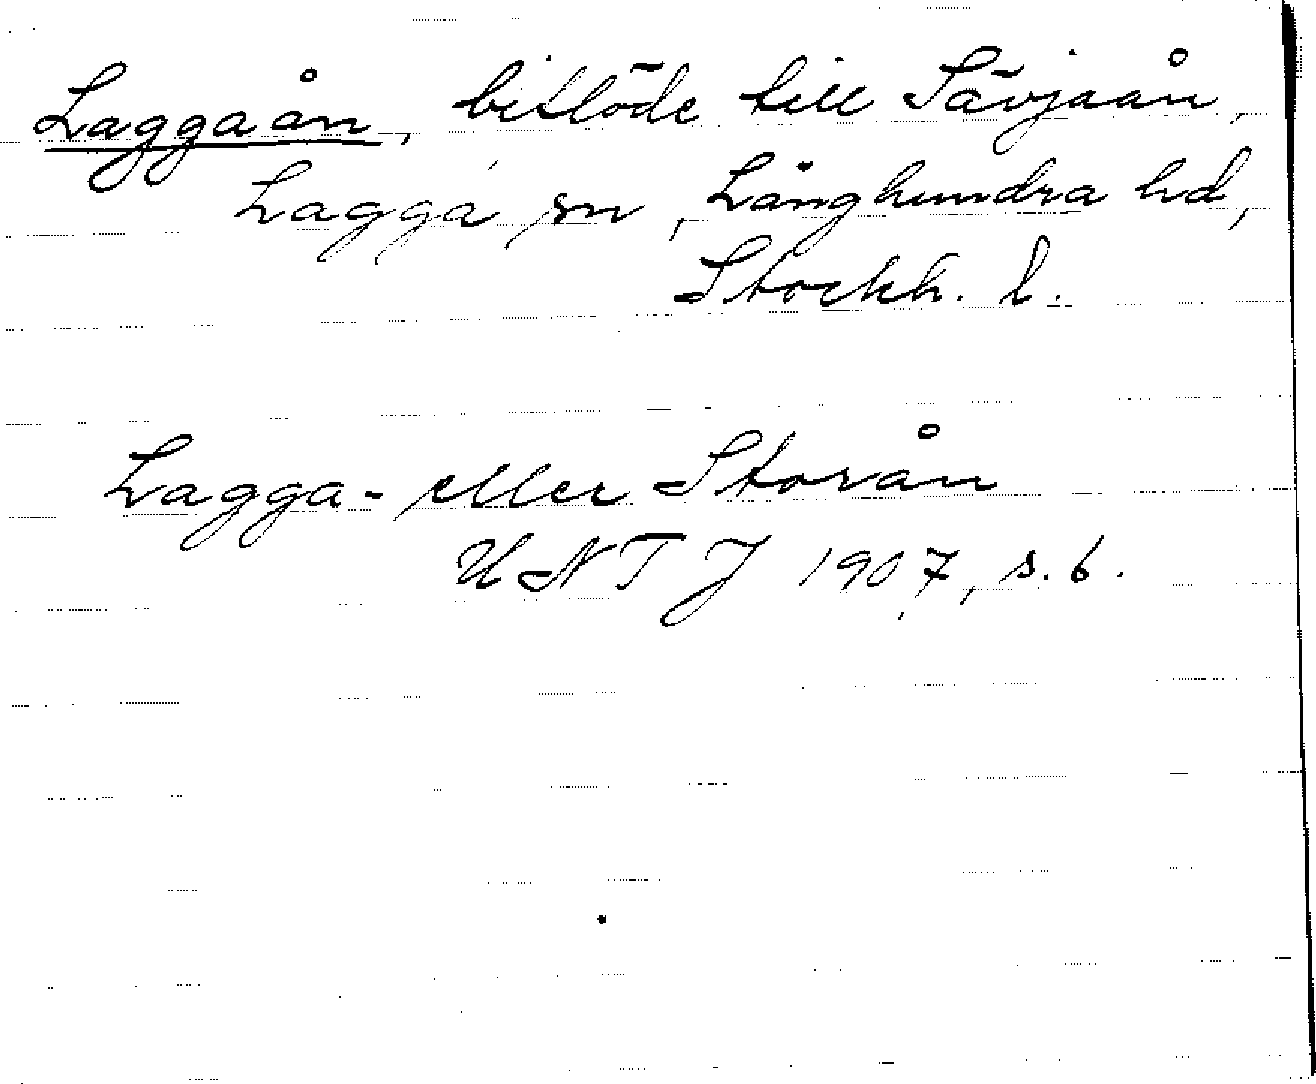 Laggaån, biflöde till Sävjaån,
Lagga sn, Långhundra hd,
Stockh. l.
Lagga- eller Storån
UNTJ 1907, s. 6.